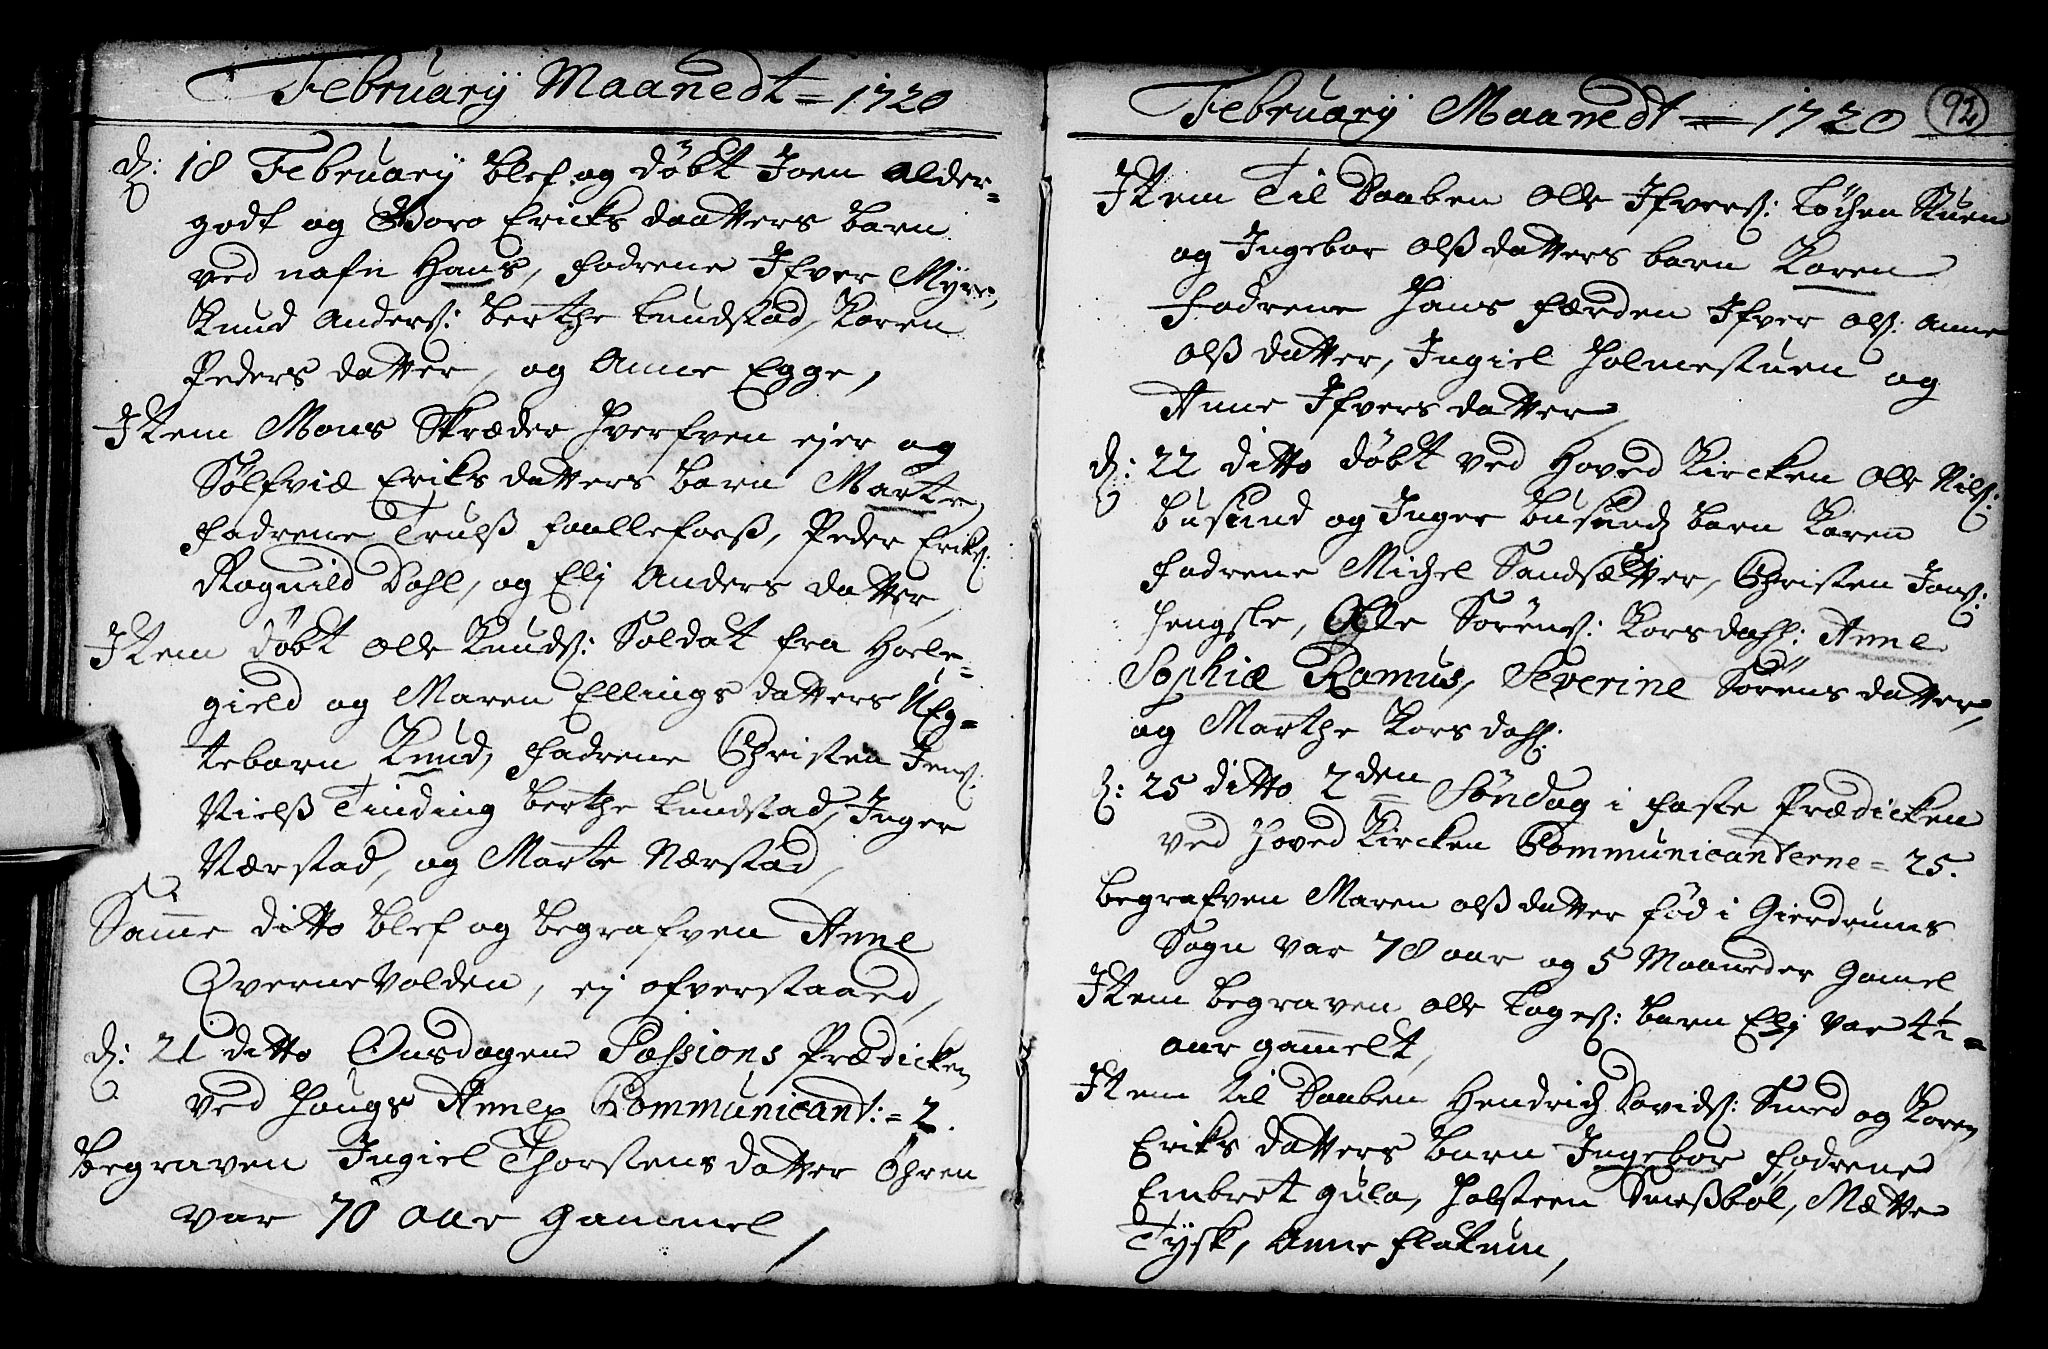 Februarÿ Maanedt = 1720
d: 18 Februarÿ blef og döbt Joen Older-
godt og Goro Ericks daatters barn
ved nafn Hans, fadrene Ifver Myre,
Knud Anders: berthe Lundstad, Karen
Peders datter, og Anne Egge,
Item Mons Skræder Hverfven ejer og
Sölfviæ Eriks datters barn Marte,
fadrene Trulß Faallefoss, Peder Eriks:
Ragnild Dahl, og Elj Anders datter,
Item döbt Olle Knuds: Soldat fra Hole-
gield og Maren Ellings datters Ug-
tebarn Knud, fadrene Christen Jens:
Nielß Tinding berthe Lundstad, Inger
Nærstad, og Marte Nærstad,
Samme ditto blef og begrafven Anne
Qvernevolden, ej ofverstaaed,
d: 21 ditto Onsdagen Passions Prædicken
ved Hougs Annex Communicant: = 2.
begraven Ingiel Thorstens datter Öhren
var 70 aar gammel,
Februarÿ Maanedt = 1720
92
Item Til Daaben Olle Ifvers: Köhen Stuen
og Ingebor Olß datters barn Karen
Fadrene Hans Færden Ifver Ols: Anne
Olß datter, Ingiel Holmestuen og
Anne Ifvers datter,
d: 22 ditto döbt ved Hoved Kircken Olle Nils:
Busund og Inger Busund barn Karen
fadrene Michel Sandsætter, Christen Jons:
Hengsle, Olle Sörens: Korsdahl: Anne
Sophiæ Ramus, Severine Sörens datter,
og Marthe Korsdahl:
d: 25 ditto 2den Söndag i faste Prædicken
ved Hoved Kircken Communicanterne = 25.
begrafven Maren Olß datter föd i Gierdrums
Sogn var 78 aar og 5 Maaneder Gamel
Item begraven Olle Tages: barn Elj var 4 1/2 =
aar gammelt,
Item til Daaben Hendrich Davids: Smed og Karen
Eriks datters barn Ingebor fadrene
Embret Gula, Holsteen Smeßböl, Mætte
Tysk, Anne Flakum,